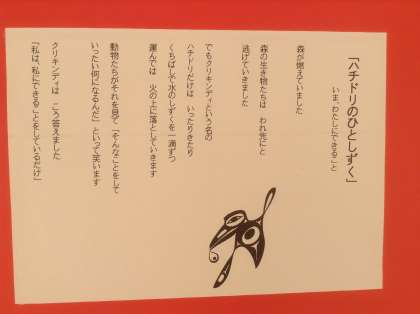 「ハチドリのひとしずく」
いま、わたしにできること
森が燃えていました
森の生き物たちは　われ先にと
逃げていきました
でもクリキンディという名の
ハチドリだけは　いったりきたり
くちばしで水のしずくを一滴ずつ
運んでは　火の上に落としていきます
動物たちがそれを見て「そんなことをして
いったい何になるんだ」といって笑います
クリキンディは　こう答えました
「私は、私にできることをしているだけ」